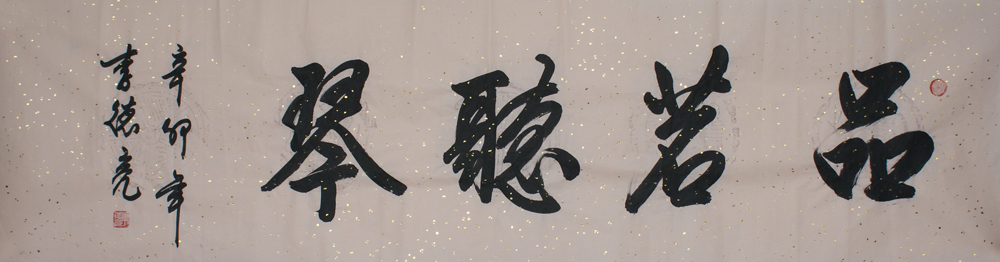 品茗聽琴
辛卯年
李德亮